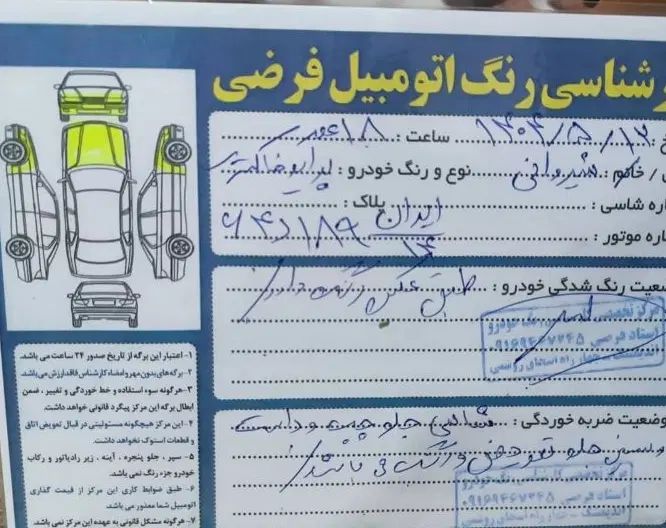 رشناسی رنگ اتومبیل فرضی
۱۴۰۴/۵/۱۲ ساعت : ۱۸ عصر
/ خانم شیروانی نوع و رنگ خودرو : پراید خاکستری
اره شاسی : پلاک : ایران ۱۴
اره موتور :
ضعیت رنگ شدگی خودرو : طبق عکس رنگ دارد
مرکز تخصصی کارشناسی رنگ خودرو
استاد فرضی ۰۹۱۶۹۴۶۷۲۴۵
اندیمشک - چهار راه امتحان روسی
وضعیت ضربه خوردگی : جلو چپ و راست
مرکز تخصصی کارشناسی رنگ خودرو
استاد فرضی ۰۹۱۶۹۴۶۷۲۴۵
۱- اعتبار این برگه از تاریخ صدور ۲۴ ساعت می باشد.
۲- برگه های بدون مهر و امضاء کارشناس فاقد ارزش می باشد.
۳- هرگونه سوء استفاده و خط خوردگی و تغییر ، ضمن
ابطال برگه این مرکز پیگرد قانونی خواهد داشت.
۴- این مرکز هیچگونه مسئولیتی در قبال تعویض اتاق
و قطعات استوک نخواهد داشت.
۵- سپر ، جلو پنجره ، آینه ، زیر رادیاتور و رکاب
خودرو جزء رنگ نمی باشد.
۶- طبق ضوابط کاری این مرکز از قیمت گذاری
اتومبیل شما معذور می باشد.
۷- هرگونه مشکل قانونی به عهده این مرکز نمی باشد.